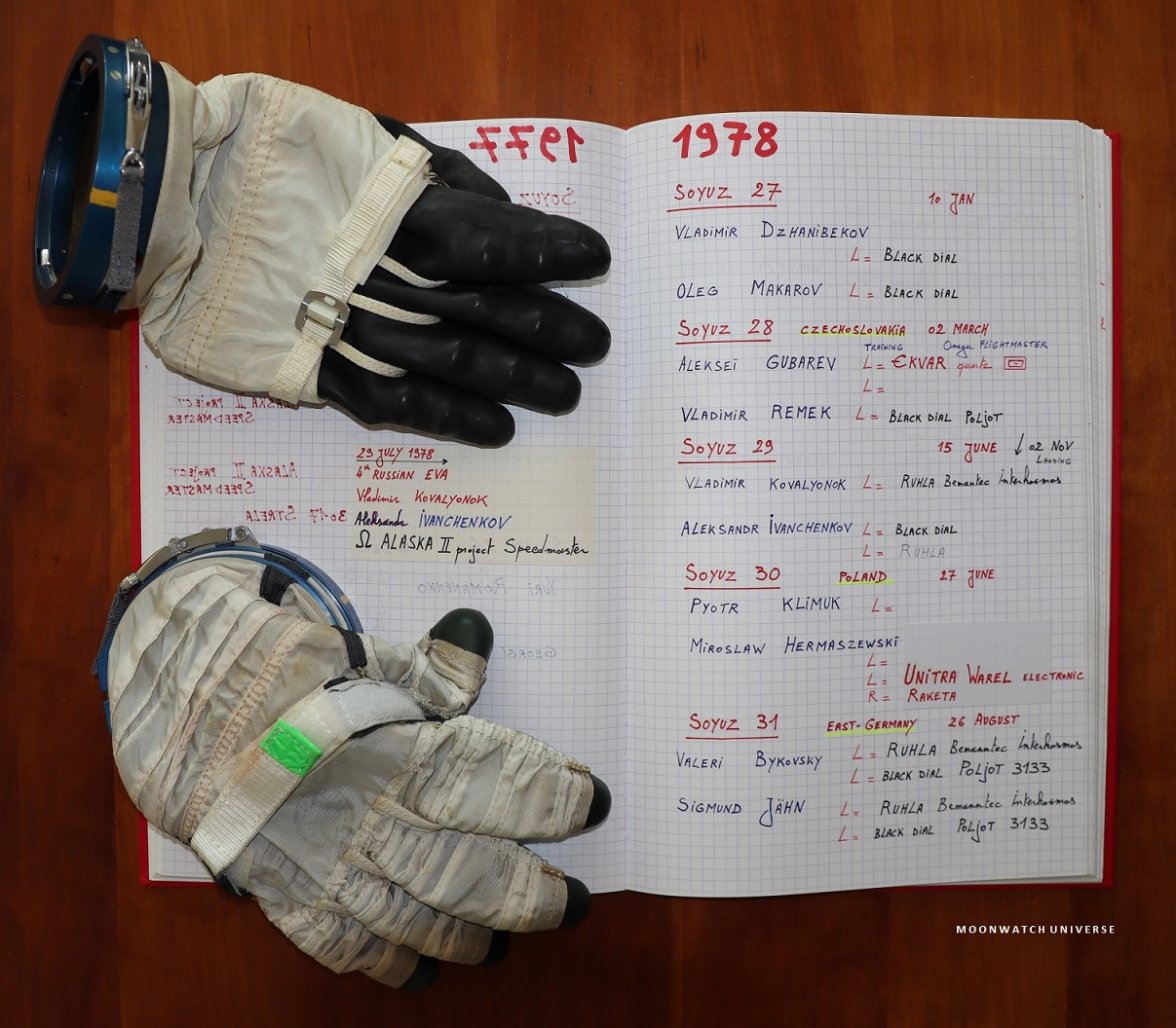 1977
SOYUZ
ALASKA II PROJECT
SPEEDMASTER
ALASKA II PROJECT
SPEEDMASTER
3017 STRELA
29 JULY 1978
4th RUSSIAN EVA
Vladimir KOVALYONOK
Aleksandr IVANCHENKOV
Ω ALASKA II project Speedmaster
YURI ROMANENKO
GEORGI
1978
SOYUZ 27 10 JAN
VLADIMIR DZHANIBEKOV
L = BLACK DIAL
OLEG MAKAROV L = BLACK DIAL
SOYUZ 28 CZECHOSLOVAKIA 02 MARCH
TRAINING Omega FLIGHTMASTER
ALEKSEÏ GUBAREV L = €KVAR quartz
L =
VLADIMIR REMEK L = BLACK DIAL POLJOT
SOYUZ 29 15 JUNE ↓ 02 NOV
LANDING
VLADIMIR KOVALYONOK L = RUHLA Bemantec Interkosmos
ALEKSANDR IVANCHENKOV L = BLACK DIAL
L = RUHLA
SOYUZ 30 POLAND 27 JUNE
PYOTR KLIMUK L =
MIROSLAW HERMASZEWSKI
L =
L = UNITRA WAREL ELECTRONIC
R = RAKETA
SOYUZ 31 EAST-GERMANY 26 AUGUST
VALERI BYKOVSKY L = RUHLA Bemanntec Interkosmos
L = BLACK DIAL POLJOT 3133
SIGMUND JÄHN L = RUHLA Bemanntec Interkosmos
L = BLACK DIAL POLJOT 3133
MOONWATCH UNIVERSE